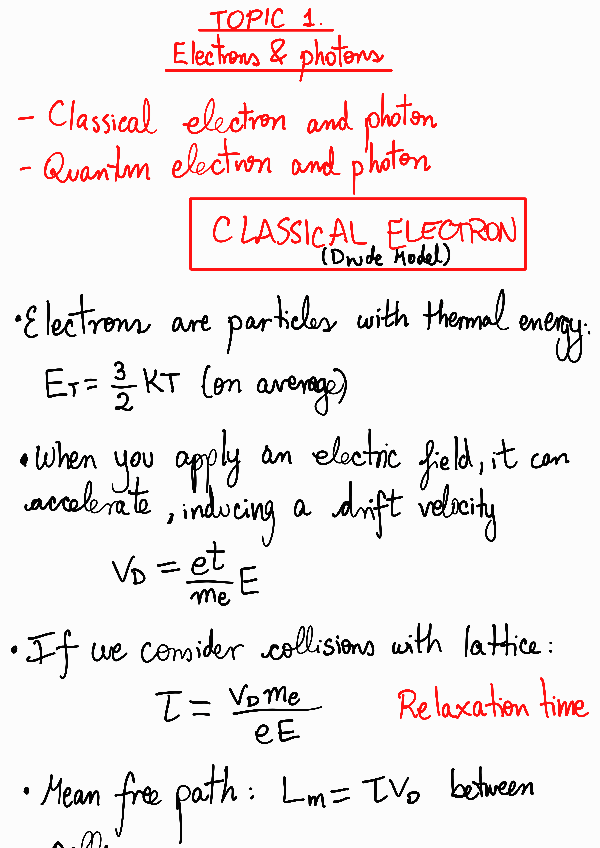 TOPIC 1.
Electrons & photons
- Classical electron and photon
- Quantum electron and photon
CLASSICAL ELECTRON
(Drude Model)
• Electrons are particles with thermal energy:
E_T = 3/2 KT (on average)
• When you apply an electric field, it can
accelerate, inducing a drift velocity
V_D = et/me E
• If we consider collisions with lattice:
τ = V_D me / eE Relaxation time
• Mean free path: Lm = τV_D between